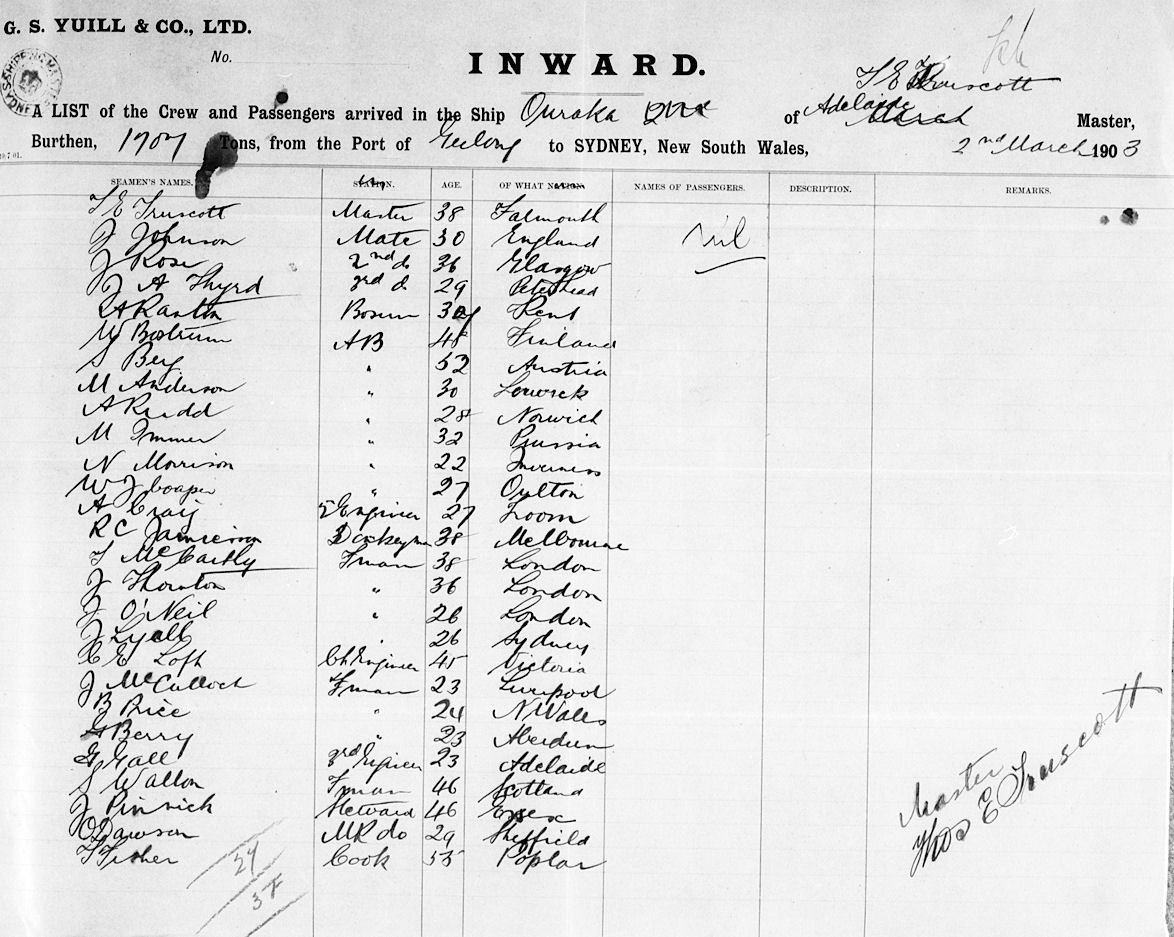 G. S. YUILL & CO., LTD.
No.
INWARD.
T E Truscott
A LIST of the Crew and Passengers arrived in the Ship Ouraka of Adelaide Master,
Burthen, 1707 Tons, from the Port of Geelong to SYDNEY, New South Wales, 2nd March 1903
SEAMEN'S NAMES. STATION. AGE. OF WHAT NATION. NAMES OF PASSENGERS. DESCRIPTION. REMARKS.
T E Truscott Master 38 Falmouth
J Johnson Mate 30 England nil
J Rose 2nd do 36 Glasgow
J A Thyrd 3rd do 29 Peterhead
Bosun Kent
W Bostrum AB Finland
S Berg " 52 Austria
M Anderson " 30
A Rudd " 28 Norwich
M Immer " 32 Prussia
N Morrison " 22 Inverness
W J Cooper " 27 Oulton
A Craig 2 Engineer 27
R C Jamieson Donkeyman 38 Melbourne
T McCarthy Fman 38 London
J Thornton " 36 London
J O'Neil " 26 London
J Lyall " 26 Sydney
C E Loft Ch Engineer 45 Victoria
J McCulloch Fman 23 Liverpool
B Price " 24 N Wales
G Berry " 23 Aberdeen
G Gall 3rd Engineer 23 Adelaide
S Walton Fman 46 Scotland
J Pinnick Steward 46 Essex
C Dawson MR do 29 Sheffield
T Fisher Cook 55 Poplar
Master
Thos E Truscott